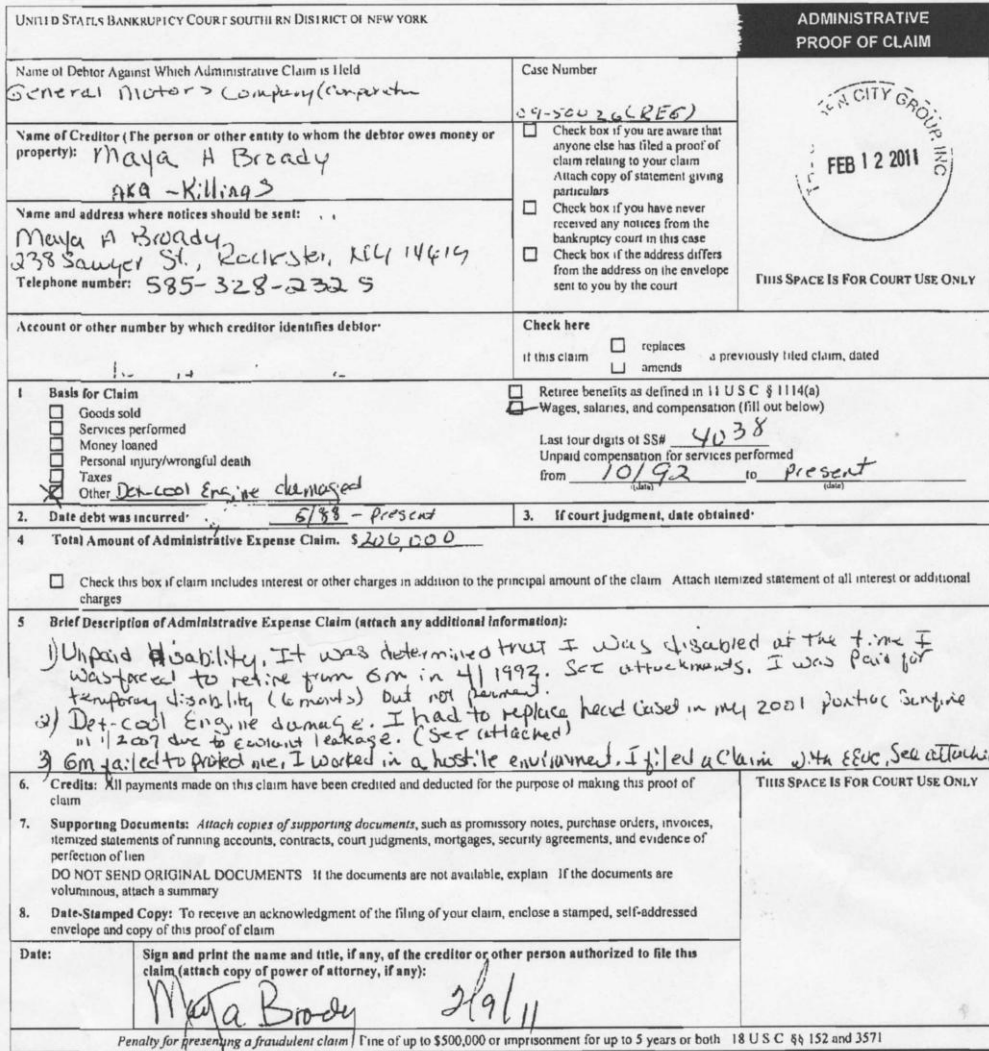 UNITED STATES BANKRUPTCY COURT SOUTHERN DISTRICT OF NEW YORK
ADMINISTRATIVE
PROOF OF CLAIM
Name of Debtor Against Which Administrative Claim is Held
General Motors Company (
Case Number
09-50026 (REG)
CITY GROUP, INC
FEB 12 2011
THIS SPACE IS FOR COURT USE ONLY
Name of Creditor (The person or other entity to whom the debtor owes money or
property): Maya A Broady
AKA - Killings
Name and address where notices should be sent:
Maya A Broady
238 Sawyer St., Rochester, NY 14619
Telephone number: 585-328-2325
Check box if you are aware that
anyone else has filed a proof of
claim relating to your claim
Attach copy of statement giving
particulars
Check box if you have never
received any notices from the
bankruptcy court in this case
Check box if the address differs
from the address on the envelope
sent to you by the court
Account or other number by which creditor identifies debtor:
Check here
if this claim
replaces
amends
a previously filed claim, dated
1 Basis for Claim
Goods sold
Services performed
Money loaned
Personal injury/wrongful death
Taxes
Other Det-cool Engine damaged
Retiree benefits as defined in 11 U S C § 1114(a)
Wages, salaries, and compensation (fill out below)
Last four digits of SS# 4038
Unpaid compensation for services performed
from 10/92 to present
(date) (date)
2. Date debt was incurred: 5/88 - Present
3. If court judgment, date obtained:
4 Total Amount of Administrative Expense Claim. $ 206,000
Check this box if claim includes interest or other charges in addition to the principal amount of the claim Attach itemized statement of all interest or additional
charges
5 Brief Description of Administrative Expense Claim (attach any additional information):
1) Unpaid Disability. It was determined that I was disabled at the time I
was forced to retire from GM in 4/1992. See attachments. I was paid for
temporary disability (6 months) but not
2) Det-cool Engine damage. I had to replace head in my 2001 pontiac Sunfire
in 1/2007 due to coolant leakage. (See attached)
3) GM failed to protect me, I worked in a hostile environment. I filed a Claim with EEOC, See
6. Credits: All payments made on this claim have been credited and deducted for the purpose of making this proof of
claim
7. Supporting Documents: Attach copies of supporting documents, such as promissory notes, purchase orders, invoices,
itemized statements of running accounts, contracts, court judgments, mortgages, security agreements, and evidence of
perfection of lien
DO NOT SEND ORIGINAL DOCUMENTS If the documents are not available, explain If the documents are
voluminous, attach a summary
8. Date-Stamped Copy: To receive an acknowledgment of the filing of your claim, enclose a stamped, self-addressed
envelope and copy of this proof of claim
THIS SPACE IS FOR COURT USE ONLY
Date:
Sign and print the name and title, if any, of the creditor or other person authorized to file this
claim (attach copy of power of attorney, if any):
Maya Broady 2/9/11
Penalty for presenting a fraudulent claim Fine of up to $500,000 or imprisonment for up to 5 years or both 18 U S C §§ 152 and 3571